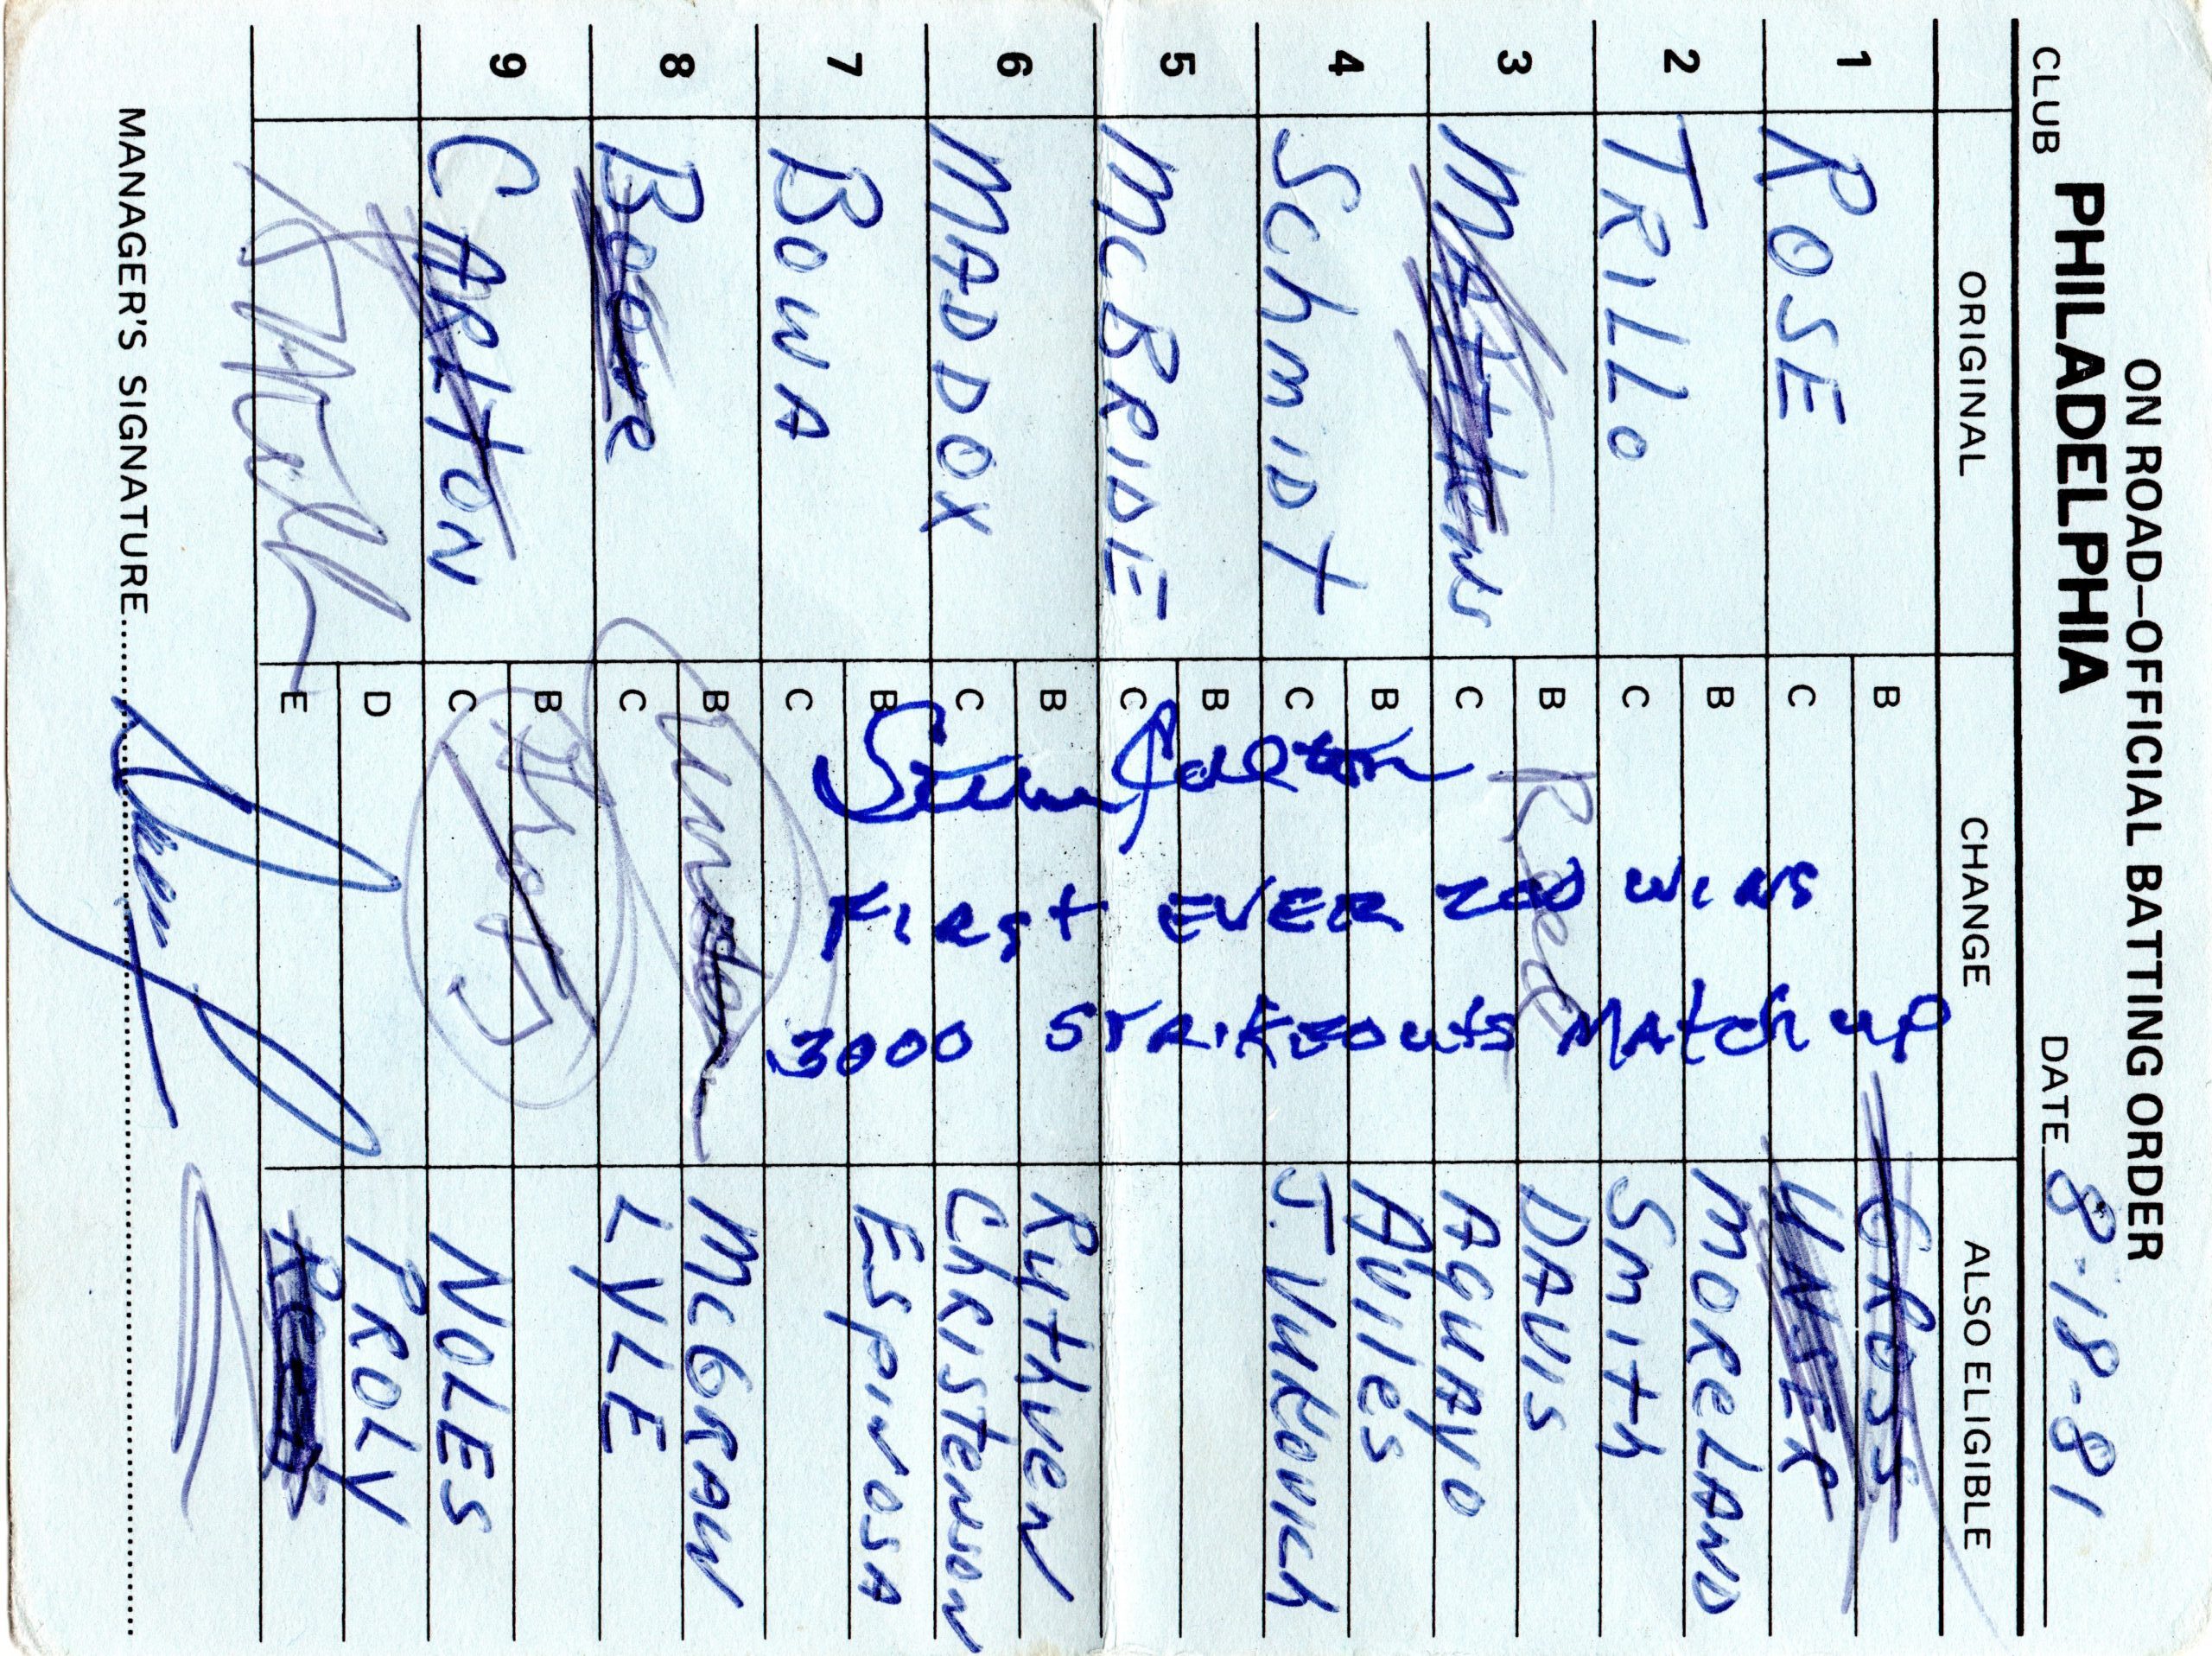 ON ROAD—OFFICIAL BATTING ORDER
CLUB PHILADELPHIA DATE 8-18-81
ORIGINAL CHANGE ALSO ELIGIBLE
1 ROSE B GROSS
C UNSER
2 TRILLO B MORELAND
C Smith
3 MATTHEWS B Reed DAVIS
C AGUAYO
4 Schmidt B AVILES
C J. VUKOVICH
5 McBRIDE B
C
6 MADDOX B Ruthven
C CHRISTENSON
7 BOWA B ESPINOSA
C
8 Boone B McGRAW
C LYLE
9 CARLTON B
C NOLES
D PROLY
E Reed
Steve Carlton
FIRST EVER 200 WINS
3000 STRIKEOUTS MATCH UP
MANAGER'S SIGNATURE